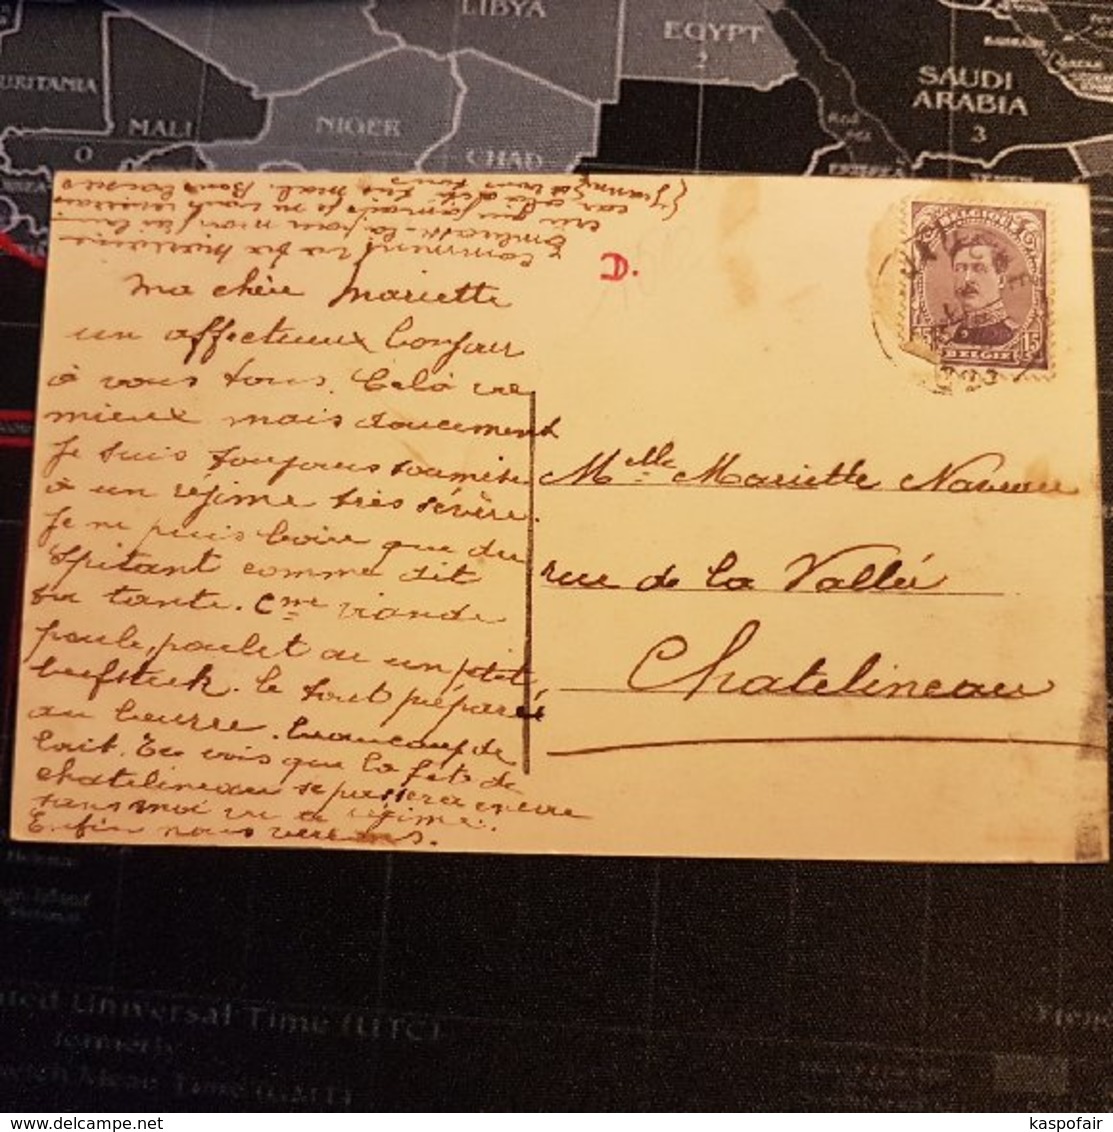 LIBYA
EGYPT
2
SAUDI
ARABIA
3
MALI
0
NIGER
CHAD
ERITREA
YEMEN
QATAR
BELGIQUE
15
15
BELGIË
D.
Ma chère Mariette
un affectueux bonjour
à vous tous. Celà va
mieux mais doucement
Je suis toujours soumise
à un régime très sévère.
Je ne puis boire que du
Spitant comme dit
ta tante. Cme viande
poule, poulet ou un ptit
beefsteck. le tout préparé
au beurre. beaucoup de
lait. Tu vois que la fête de
chatelineau se passera encore
sans moi vu ce régime.
Enfin nous verrons.
Comment va
Embrasse-la pour moi
car cela
Bons baisers
à vous tous
Melle Mariette Naveau
rue de la Vallée
Chatelineau
Universal Time (UTC)
formerly
Mean Time (GMT)
kaspofair